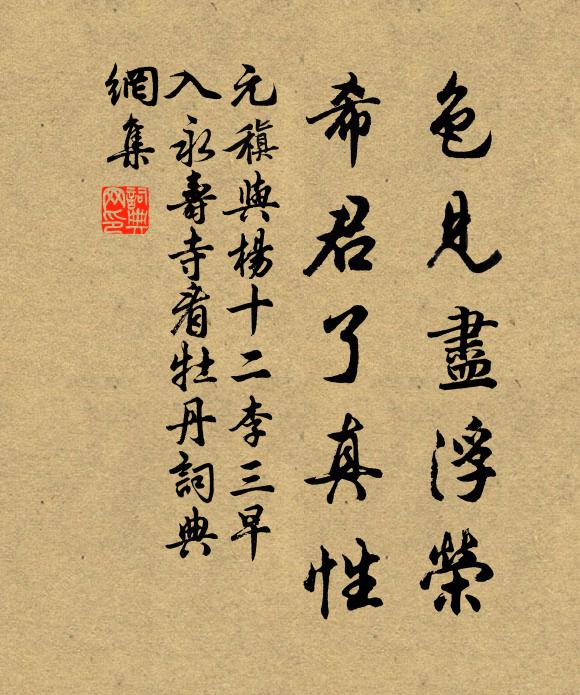 色見盡浮榮
希君了真性
元稹與楊十二李三早
入永壽寺看牡丹詞典
網集
詞典
網印